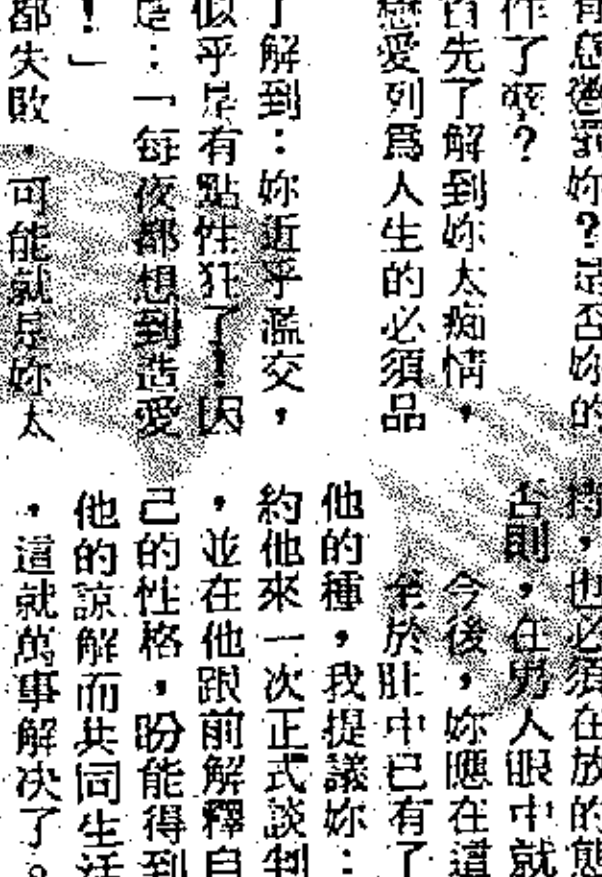 有急
妳？是否妳的
作了孽？
首先了解到妳太痴情，
戀愛列爲人生的必須品
了解到：妳近乎濫交，
似乎是有點性狂了！因
是：「每夜都想到造愛
！」
都失敗，可能就是妳太
待，也必須在放的態
否則，在男人眼中就
今後，妳應在這
至於肚中已有了
他的種，我提議妳：
約他來一次正式談判
，並在他跟前解釋自
己的性格，盼能得到
他的諒解而共同生活
，這就萬事解决了。